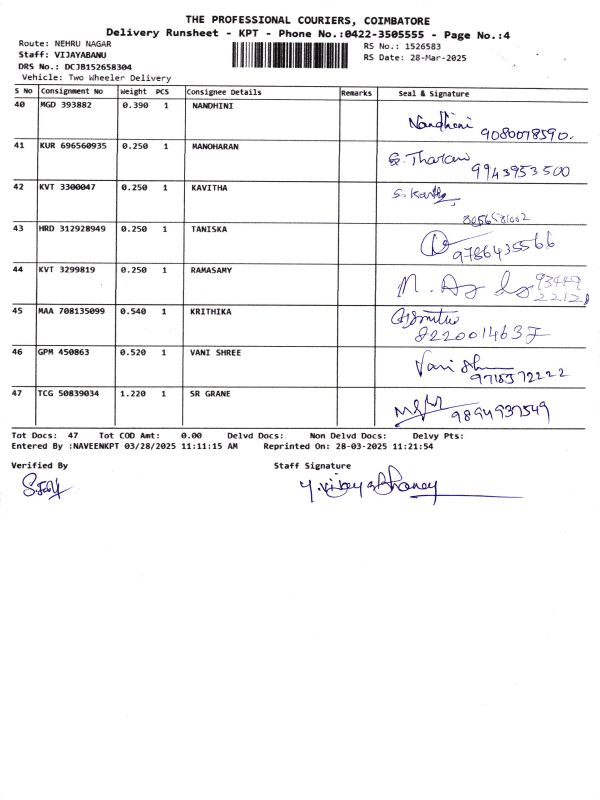 THE PROFESSIONAL COURIERS, COIMBATORE
Delivery Runsheet - KPT - Phone No.:0422-3505555 - Page No.:4
Route: NEHRU NAGAR
RS No.: 1526583
Staff: VIJAYABANU
RS Date: 28-Mar-2025
DRS No.: DCJB152658304
Vehicle: Two Wheeler Delivery
S No Consignment No Weight PCS Consignee Details Remarks Seal & Signature
40 MGD 393882 0.390 1 NANDHINI
Nandhini 9080078590.
41 KUR 696560935 0.250 1 MANOHARAN
Tharani
9943953500
42 KVT 3300047 0.250 1 KAVITHA
43 HRD 312928949 0.250 1 TANISKA
9786435566
44 KVT 3299819 0.250 1 RAMASAMY
93449
45 MAA 708135099 0.540 1 KRITHIKA
8220014637
46 GPM 450863 0.520 1 VANI SHREE
Vani
9715372222
47 TCG 50839034 1.220 1 SR GRANE
9894937549
Tot Docs: 47 Tot COD Amt: 0.00 Delvd Docs: Non Delvd Docs: Delvy Pts:
Entered By :NAVEENKPT 03/28/2025 11:11:15 AM Reprinted On: 28-03-2025 11:21:54
Verified By Staff Signature